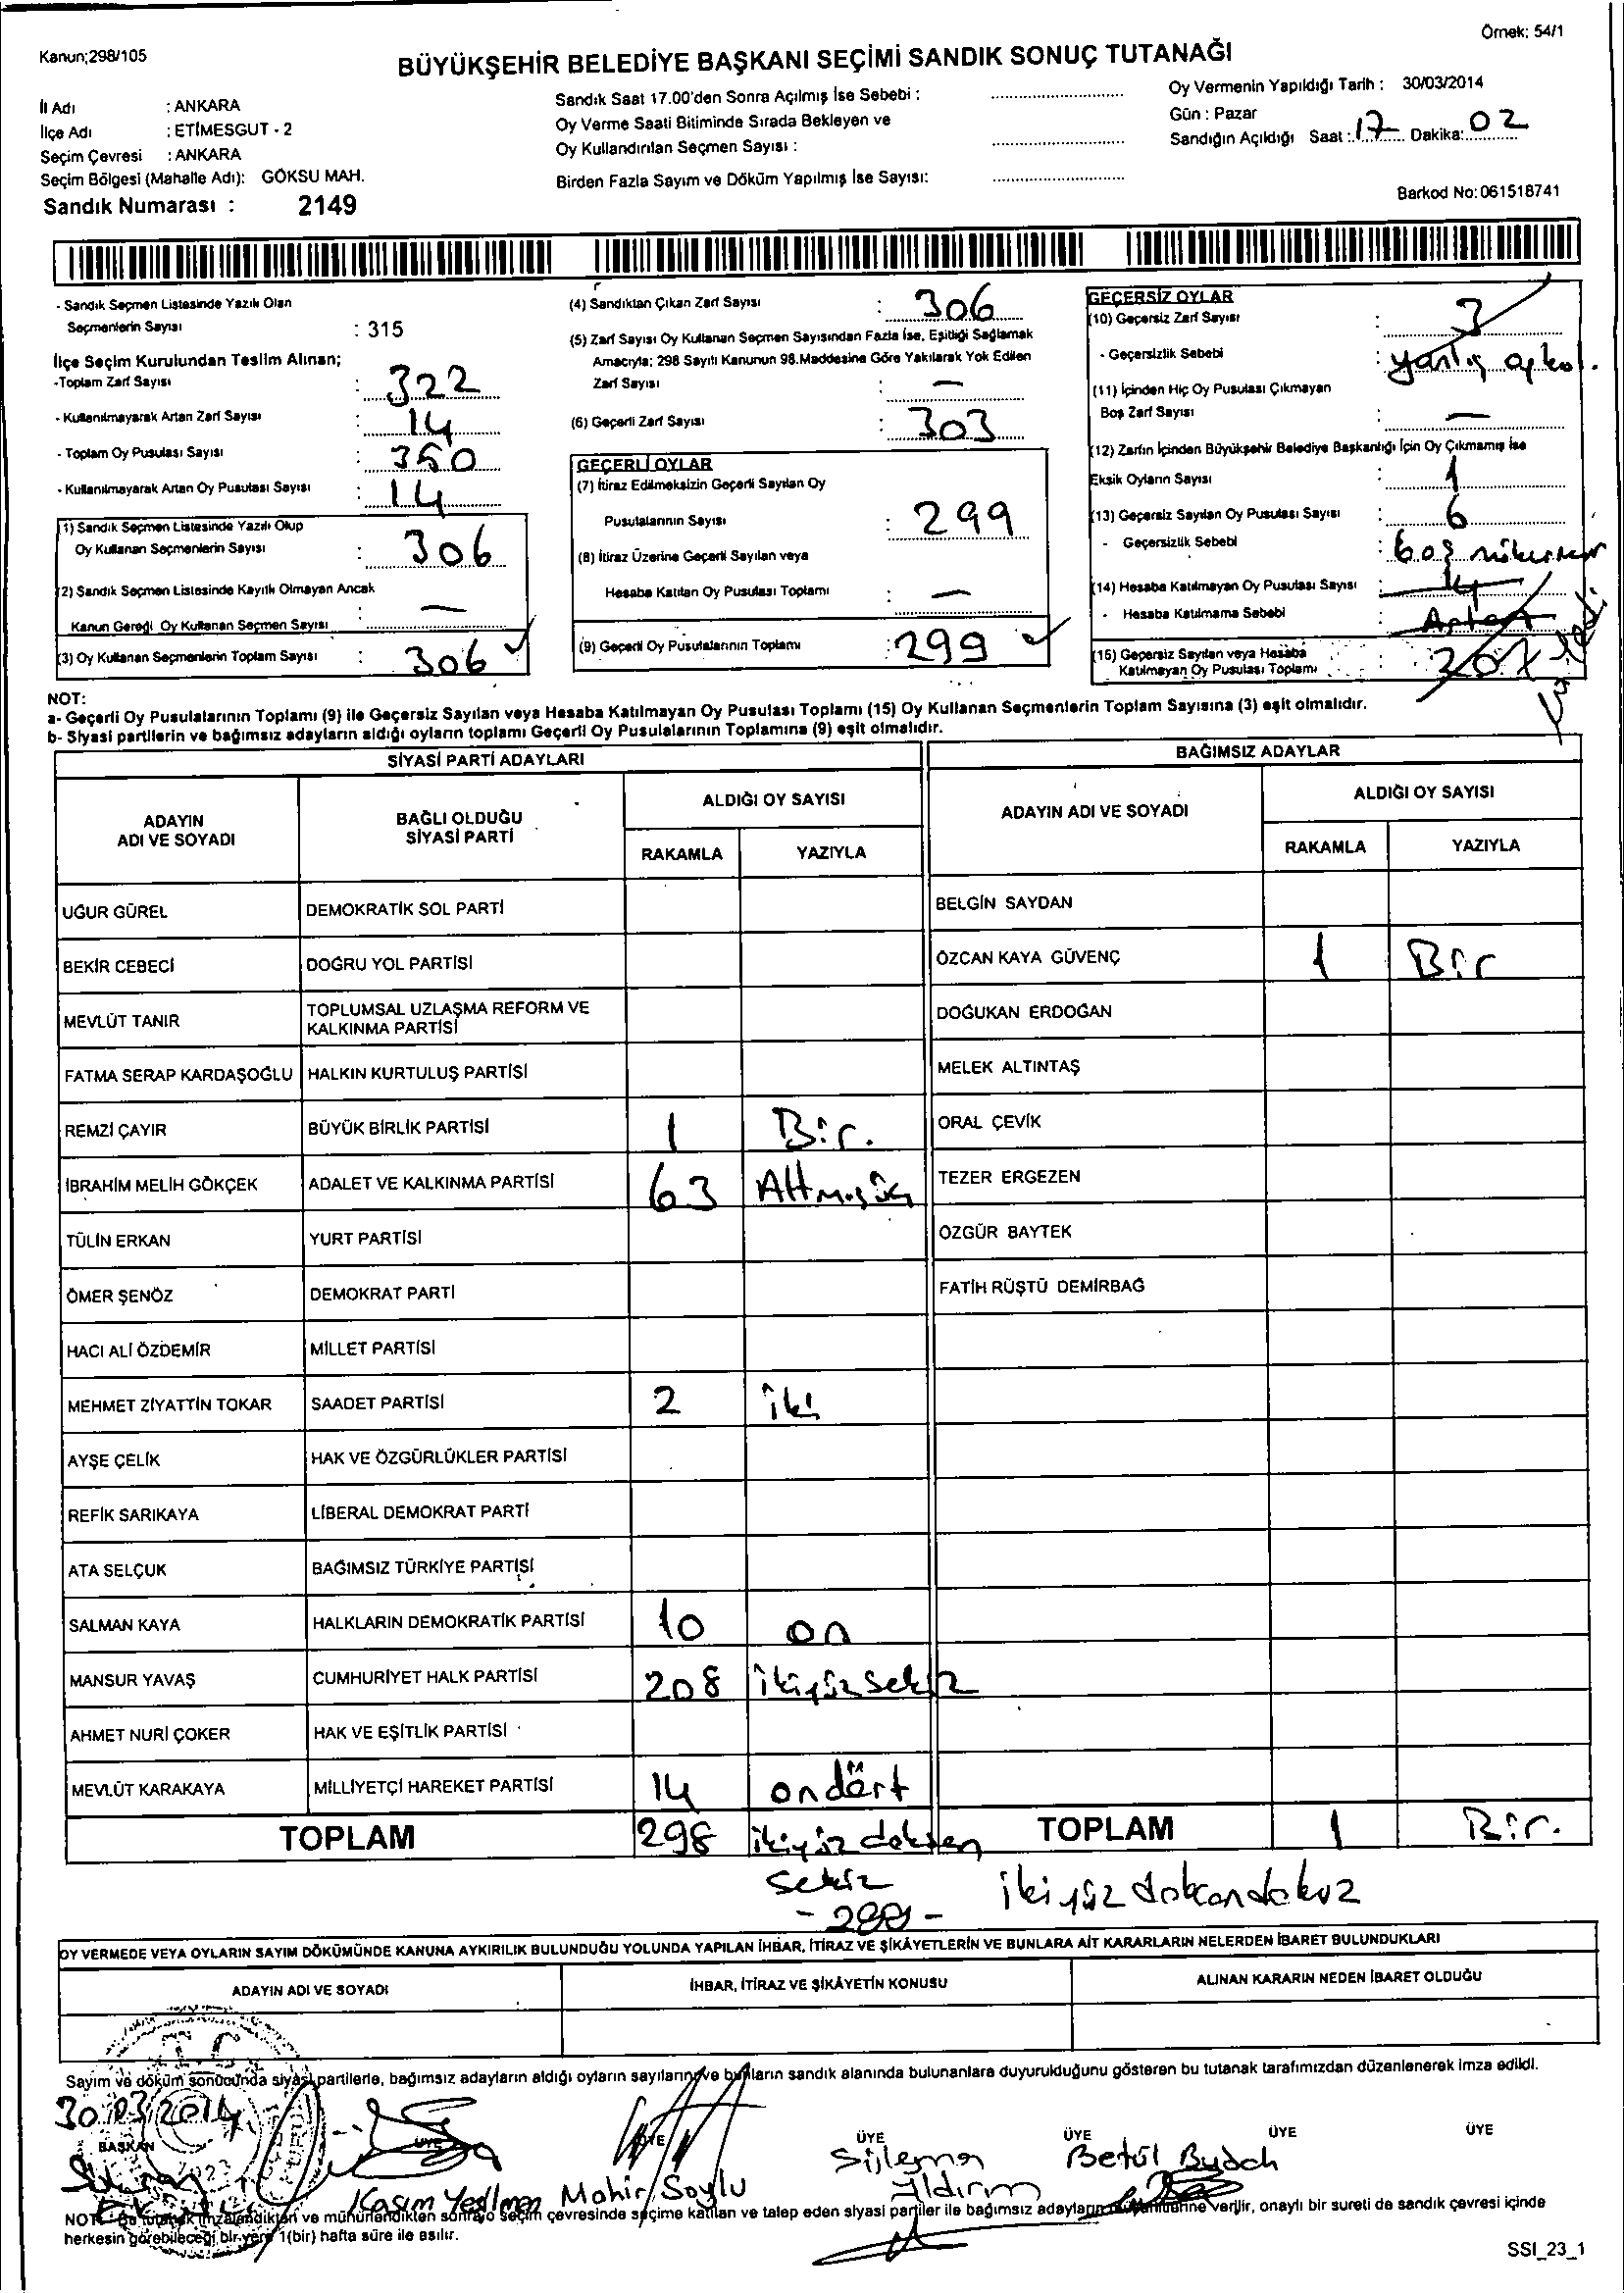 Kanun;298/105
Örnek: 54/1
BÜYÜKŞEHİR BELEDİYE BAŞKANI SEÇİMİ SANDIK SONUÇ TUTANAĞI
İl Adı : ANKARA
İlçe Adı : ETİMESGUT - 2
Seçim Çevresi : ANKARA
Seçim Bölgesi (Mahalle Adı): GÖKSU MAH.
Sandık Numarası : 2149
Sandık Saat 17.00'den Sonra Açılmış İse Sebebi :
Oy Verme Saati Bitiminde Sırada Bekleyen ve
Oy Kullandırılan Seçmen Sayısı :
Birden Fazla Sayım ve Döküm Yapılmış İse Sayısı:
Oy Vermenin Yapıldığı Tarih : 30/03/2014
Gün : Pazar
Sandığın Açıldığı Saat : 17 Dakika: 02
Barkod No: 061518741
- Sandık Seçmen Listesinde Yazılı Olan
Seçmenlerin Sayısı : 315
İlçe Seçim Kurulundan Teslim Alınan;
-Toplam Zarf Sayısı : 322
- Kullanılmayarak Artan Zarf Sayısı : 14
- Toplam Oy Pusulası Sayısı : 350
- Kullanılmayarak Artan Oy Pusulası Sayısı : 14
(1) Sandık Seçmen Listesinde Yazılı Olup
Oy Kullanan Seçmenlerin Sayısı : 306
(2) Sandık Seçmen Listesinde Kayıtlı Olmayan Ancak
Kanun Gereği Oy Kullanan Seçmen Sayısı : —
(3) Oy Kullanan Seçmenlerin Toplam Sayısı : 306
(4) Sandıktan Çıkan Zarf Sayısı : 306
(5) Zarf Sayısı Oy Kullanan Seçmen Sayısından Fazla İse, Eşitliği Sağlamak
Amacıyla; 298 Sayılı Kanunun 98.Maddesine Göre Yakılarak Yok Edilen
Zarf Sayısı : —
(6) Geçerli Zarf Sayısı : 303
GEÇERLİ OYLAR
(7) İtiraz Edilmeksizin Geçerli Sayılan Oy
Pusulalarının Sayısı : 299
(8) İtiraz Üzerine Geçerli Sayılan veya
Hesaba Katılan Oy Pusulası Toplamı : —
(9) Geçerli Oy Pusulalarının Toplamı : 299
GEÇERSİZ OYLAR
(10) Geçersiz Zarf Sayısı : 3
- Geçersizlik Sebebi : yanlış oy kol.
(11) İçinden Hiç Oy Pusulası Çıkmayan
Boş Zarf Sayısı : —
(12) Zarfın İçinden Büyükşehir Belediye Başkanlığı İçin Oy Çıkmamış İse
Eksik Oyların Sayısı : 1
(13) Geçersiz Sayılan Oy Pusulası Sayısı : 6
- Geçersizlik Sebebi : boş
(14) Hesaba Katılmayan Oy Pusulası Sayısı : 14
- Hesaba Katılmama Sebebi : Artan
(15) Geçersiz Sayılan veya Hesaba
Katılmayan Oy Pusulası Toplamı : 207
NOT:
a- Geçerli Oy Pusulalarının Toplamı (9) ile Geçersiz Sayılan veya Hesaba Katılmayan Oy Pusulası Toplamı (15) Oy Kullanan Seçmenlerin Toplam Sayısına (3) eşit olmalıdır.
b- Siyasi partilerin ve bağımsız adayların aldığı oyların toplamı Geçerli Oy Pusulalarının Toplamına (9) eşit olmalıdır.
SİYASİ PARTİ ADAYLARI
ADAYIN ADI VE SOYADI BAĞLI OLDUĞU SİYASİ PARTİ ALDIĞI OY SAYISI
RAKAMLA YAZIYLA
UĞUR GÜREL DEMOKRATİK SOL PARTİ
BEKİR CEBECİ DOĞRU YOL PARTİSİ
MEVLÜT TANIR TOPLUMSAL UZLAŞMA REFORM VE KALKINMA PARTİSİ
FATMA SERAP KARDAŞOĞLU HALKIN KURTULUŞ PARTİSİ
REMZİ ÇAYIR BÜYÜK BİRLİK PARTİSİ 1 Bir.
İBRAHİM MELİH GÖKÇEK ADALET VE KALKINMA PARTİSİ 63 Altmışüç
TÜLİN ERKAN YURT PARTİSİ
ÖMER ŞENÖZ DEMOKRAT PARTİ
HACI ALİ ÖZDEMİR MİLLET PARTİSİ
MEHMET ZİYATTİN TOKAR SAADET PARTİSİ 2 iki
AYŞE ÇELİK HAK VE ÖZGÜRLÜKLER PARTİSİ
REFİK SARIKAYA LİBERAL DEMOKRAT PARTİ
ATA SELÇUK BAĞIMSIZ TÜRKİYE PARTİSİ
SALMAN KAYA HALKLARIN DEMOKRATİK PARTİSİ 10 on
MANSUR YAVAŞ CUMHURİYET HALK PARTİSİ 208 ikiyüzsekiz
AHMET NURİ ÇOKER HAK VE EŞİTLİK PARTİSİ
MEVLÜT KARAKAYA MİLLİYETÇİ HAREKET PARTİSİ 14 ondört
TOPLAM 298 ikiyüz doksen
sekiz
- 299 -
BAĞIMSIZ ADAYLAR
ADAYIN ADI VE SOYADI ALDIĞI OY SAYISI
RAKAMLA YAZIYLA
BELGİN SAYDAN
ÖZCAN KAYA GÜVENÇ 1 Bir
DOĞUKAN ERDOĞAN
MELEK ALTINTAŞ
ORAL ÇEVİK
TEZER ERGEZEN
ÖZGÜR BAYTEK
FATİH RÜŞTÜ DEMİRBAĞ
TOPLAM 1 Bir.
ikiyüz doksandokuz
OY VERMEDE VEYA OYLARIN SAYIM DÖKÜMÜNDE KANUNA AYKIRILIK BULUNDUĞU YOLUNDA YAPILAN İHBAR, İTİRAZ VE ŞİKÂYETLERİN VE BUNLARA AİT KARARLARIN NELERDEN İBARET BULUNDUKLARI
ADAYIN ADI VE SOYADI İHBAR, İTİRAZ VE ŞİKÂYETİN KONUSU ALINAN KARARIN NEDEN İBARET OLDUĞU
T.C.
Sayım ve döküm sonucunda siyasi partilerle, bağımsız adayların aldığı oyların sayılarını ve bunların sandık alanında bulunanlara duyurulduğunu gösteren bu tutanak tarafımızdan düzenlenerek imza edildi.
30/03/2014
BAŞKAN ÜYE ÜYE ÜYE ÜYE ÜYE ÜYE
Kasım Yeşilmen Mahir Soylu Süleman Yıldırım Betül
NOT : Bu tutanak imzalandıktan ve mühürlendikten sonra o seçim çevresinde seçime katılan ve talep eden siyasi partiler ile bağımsız adayların verilir, onaylı bir sureti de sandık çevresi içinde
herkesin görebileceği bir yere 1(bir) hafta süre ile asılır.
SSI_23_1